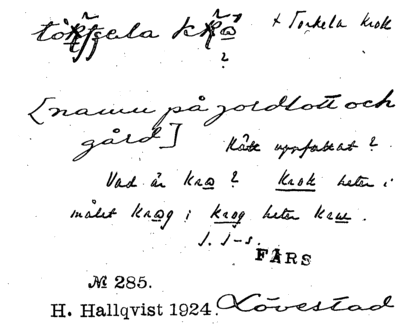 tökʃela kra + Torkela krok
?
[namn på jordlott och
gård] Rätt uppfattat?
Vad är kra? Krok heter i
målet krog; krog heter kra.
J. J-s.
FÄRS
№ 285.
H. Hallqvist 1924. Lövestad